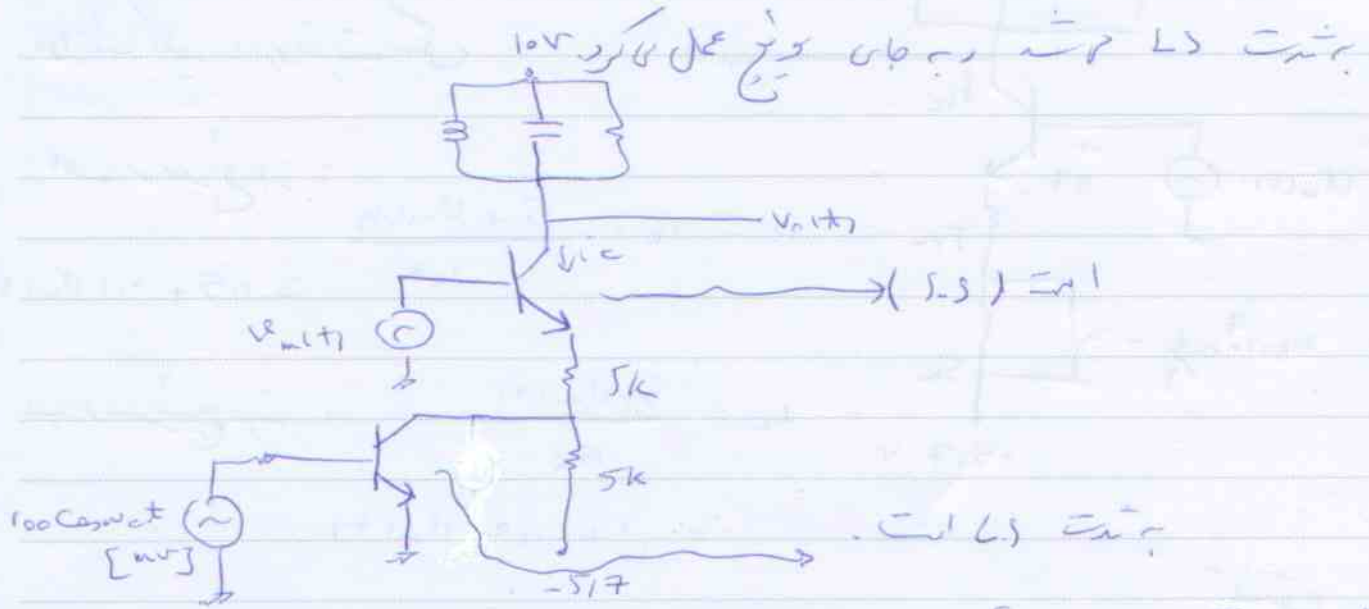 بشدت L.S باشد و به جای سوئیچ عمل می‌کرد
10v
Vo(t)
↓ic
است (S.S)
Vm(t)
5k
5k
100 Cosωct
[mv]
-5,7
به شدت L.S است.